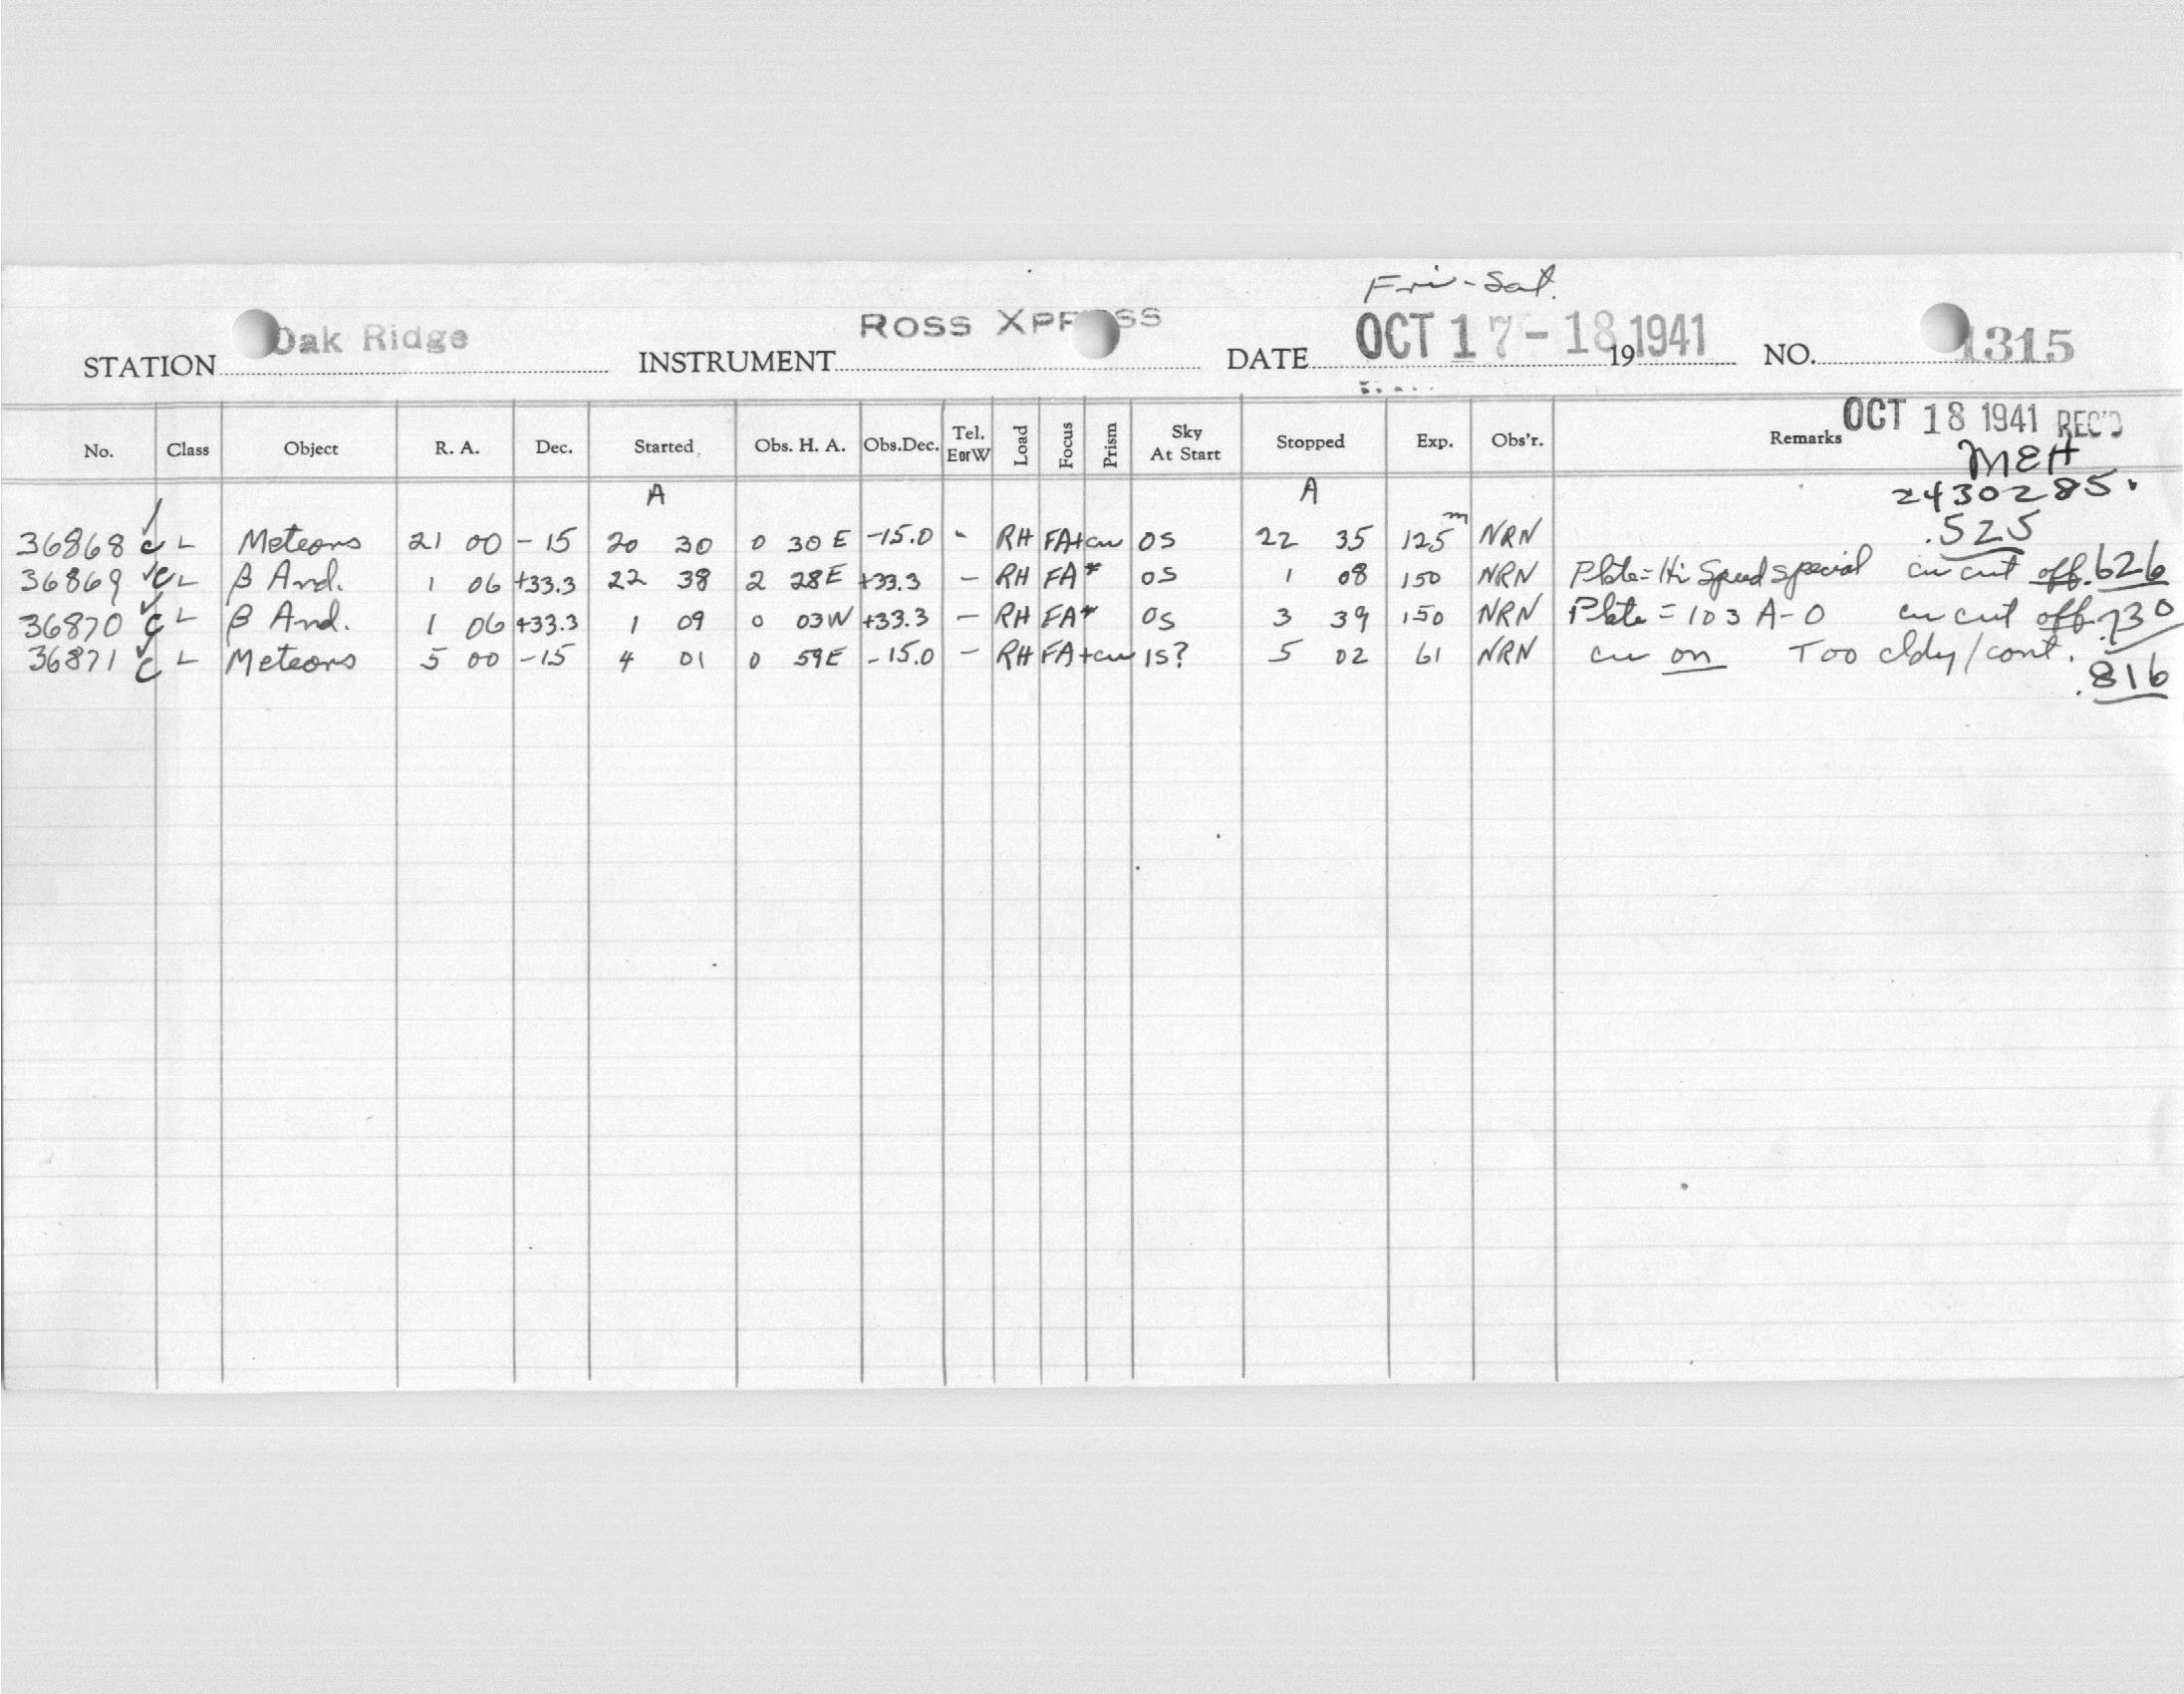 Fri-Sat.
STATION Oak Ridge INSTRUMENT ROSS XPRESS DATE OCT 17-18 1941 19 NO. 1315
OCT 18 1941 REC'D
No. Class Object R. A. Dec. Started Obs. H. A. Obs.Dec. Tel. E or W Load Focus Prism Sky At Start Stopped Exp. Obs'r. Remarks
MEH
A A 2430285.
36868 c L Meteors 21 00 -15 20 30 0 30 E -15.0 - RH FA+cw OS 22 35 125m NRN .525
36869 c L β And. 1 06 +33.3 22 38 2 28E +33.3 - RH FA* OS 1 08 150 NRN Plate=Hi Speed special cw cut off .626
36870 c L β And. 1 06 +33.3 1 09 0 03W +33.3 - RH FA* OS 3 39 150 NRN Plate = 103 A-O cw cut off .730
36871 c L Meteors 5 00 -15 4 01 0 59E -15.0 - RH FA+cw 1S? 5 02 61 NRN cw on Too cldy/cont.
.816